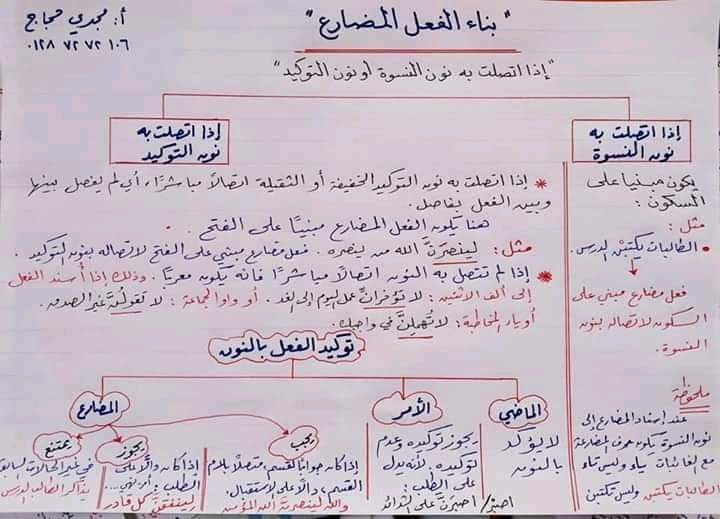 " بناء الفعل المضارع "
أ: مجدي حجاج
٠١٢٨ ٧٢ ٧٢ ١٠٦
"إذا اتصلت به نون النسوة أو نون التوكيد"
إذا اتصلت به
نون النسوة
يكون مبنيا على
السكون :
مثل :
• الطالبات يكتبْنَ الدرس.
فعل مضارع مبني على
السكون لاتصاله بنون
النسوة.
ملحوظة
عند إسناد المضارع إلى
نون النسوة يكون حرف المضارعة
مع الغائبات ياء وليس تاء
الطالبات يكتبن وليس تكتبن
إذا اتصلت به
نون التوكيد
* إذا اتصلت به نون التوكيد الخفيفة أو الثقيلة اتصالًا مباشرًا، أي لم يفصل بينها
وبين الفعل بفاصل.
هنا يكون الفعل المضارع مبنيًا على الفتح.
مثل: لينصرَنَّ الله من ينصره. فعل مضارع مبني على الفتح لاتصاله بنون التوكيد.
* إذا لم تتصل به النون اتصالًا مباشرًا فإنه يكون معربًا. وذلك إذا أسند الفعل
إلى ألف الاثنين: لا تؤخرانِّ عمل اليوم إلى الغد. أو واو الجماعة: لا تقولُنَّ غير الصدق.
أو ياء المخاطبة: لا تهملِنَّ في واجبك.
توكيد الفعل بالنون
الماضي
لا يؤكد
بالنون
الأمر
يجوز توكيده وعدم
توكيده. لأنه يدل
على الطلب:
اصبرْ/ اصبرَنَّ على الشدائد
المضارع
يجب
إذا كان جوابًا لقسم، متصلًا بلام
القسم، دالًا على الاستقبال.
والله لينصرنَّ الله المؤمنين
يجوز
إذا كان دالًا على
الطلب: أو نفي...
لينفقنَّ كل قادر
يمتنع
في غير الحالات السابقة
يذاكر الطالب الدرس